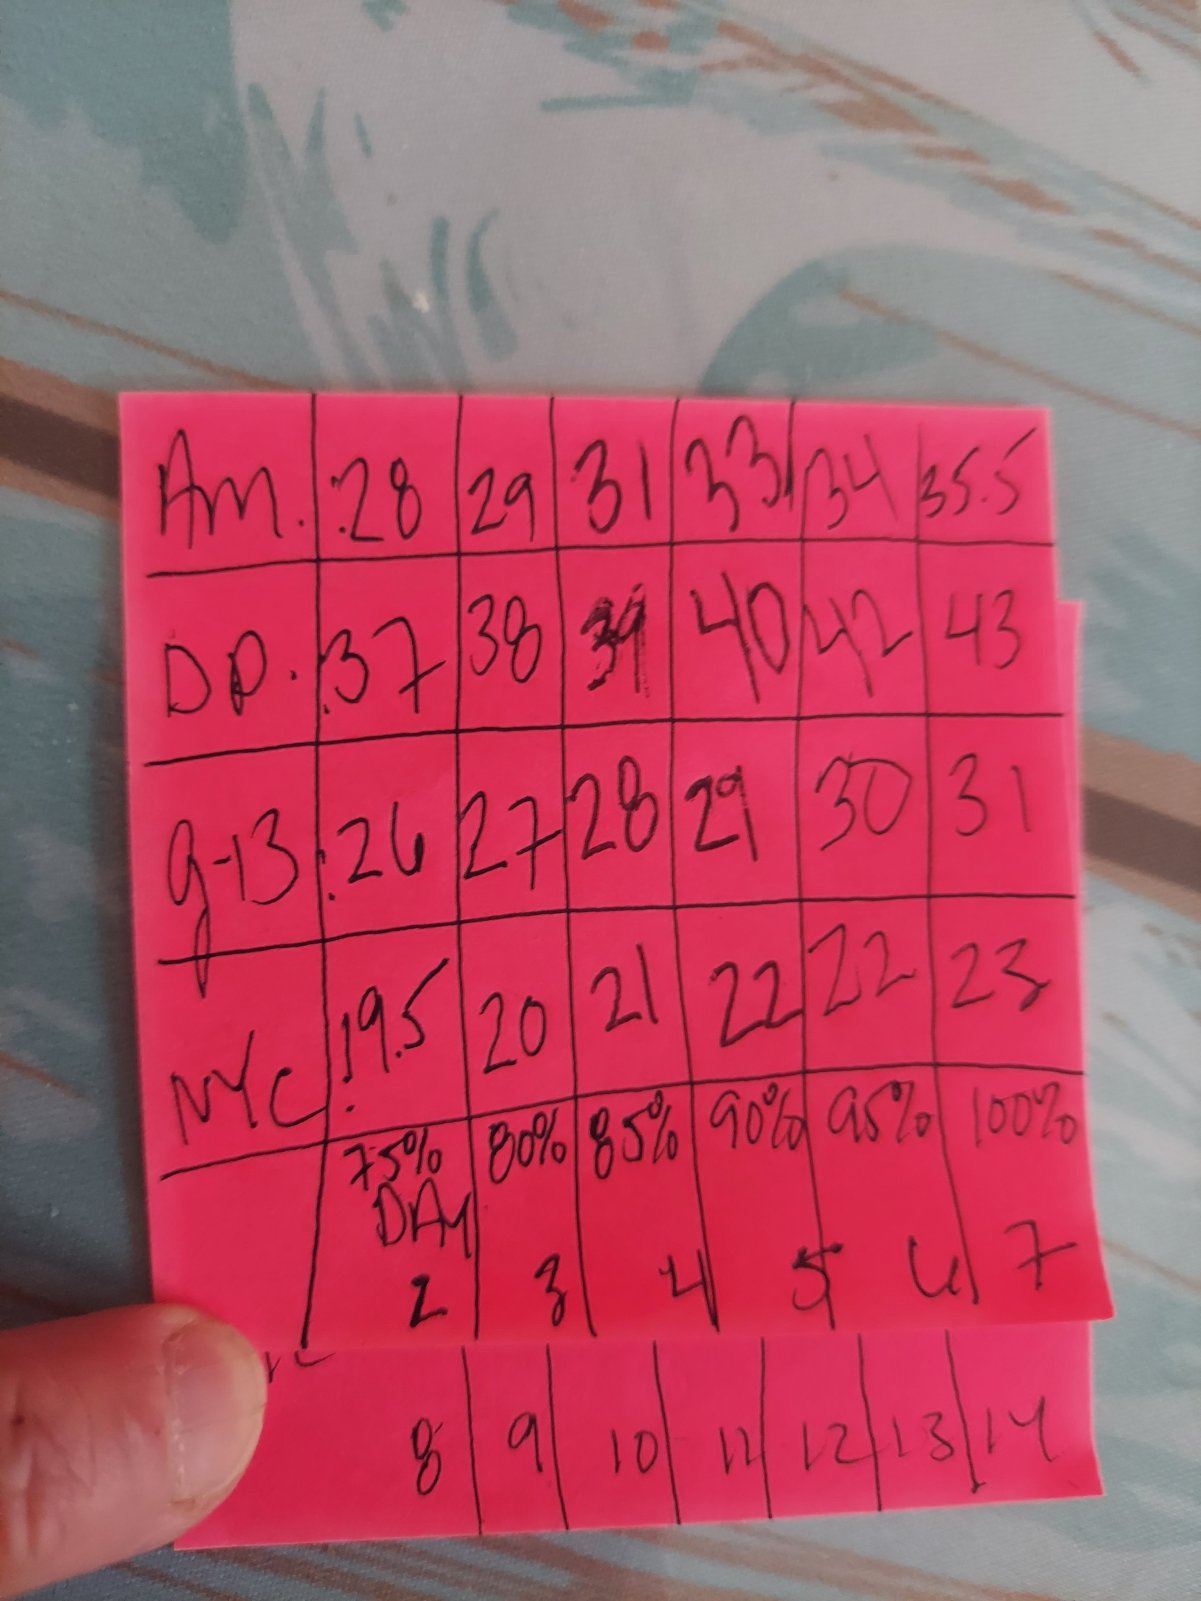 Am. :28 29 31 33 34 35.5
DD. :37 38 39 40 42 43
g-13 :26 27 28 29 30 31
NYC :19.5 20 21 22 22 23
75% 80% 85% 90% 95% 100%
DAY
2 3 4 5 6 7
8 9 10 11 12 13 14